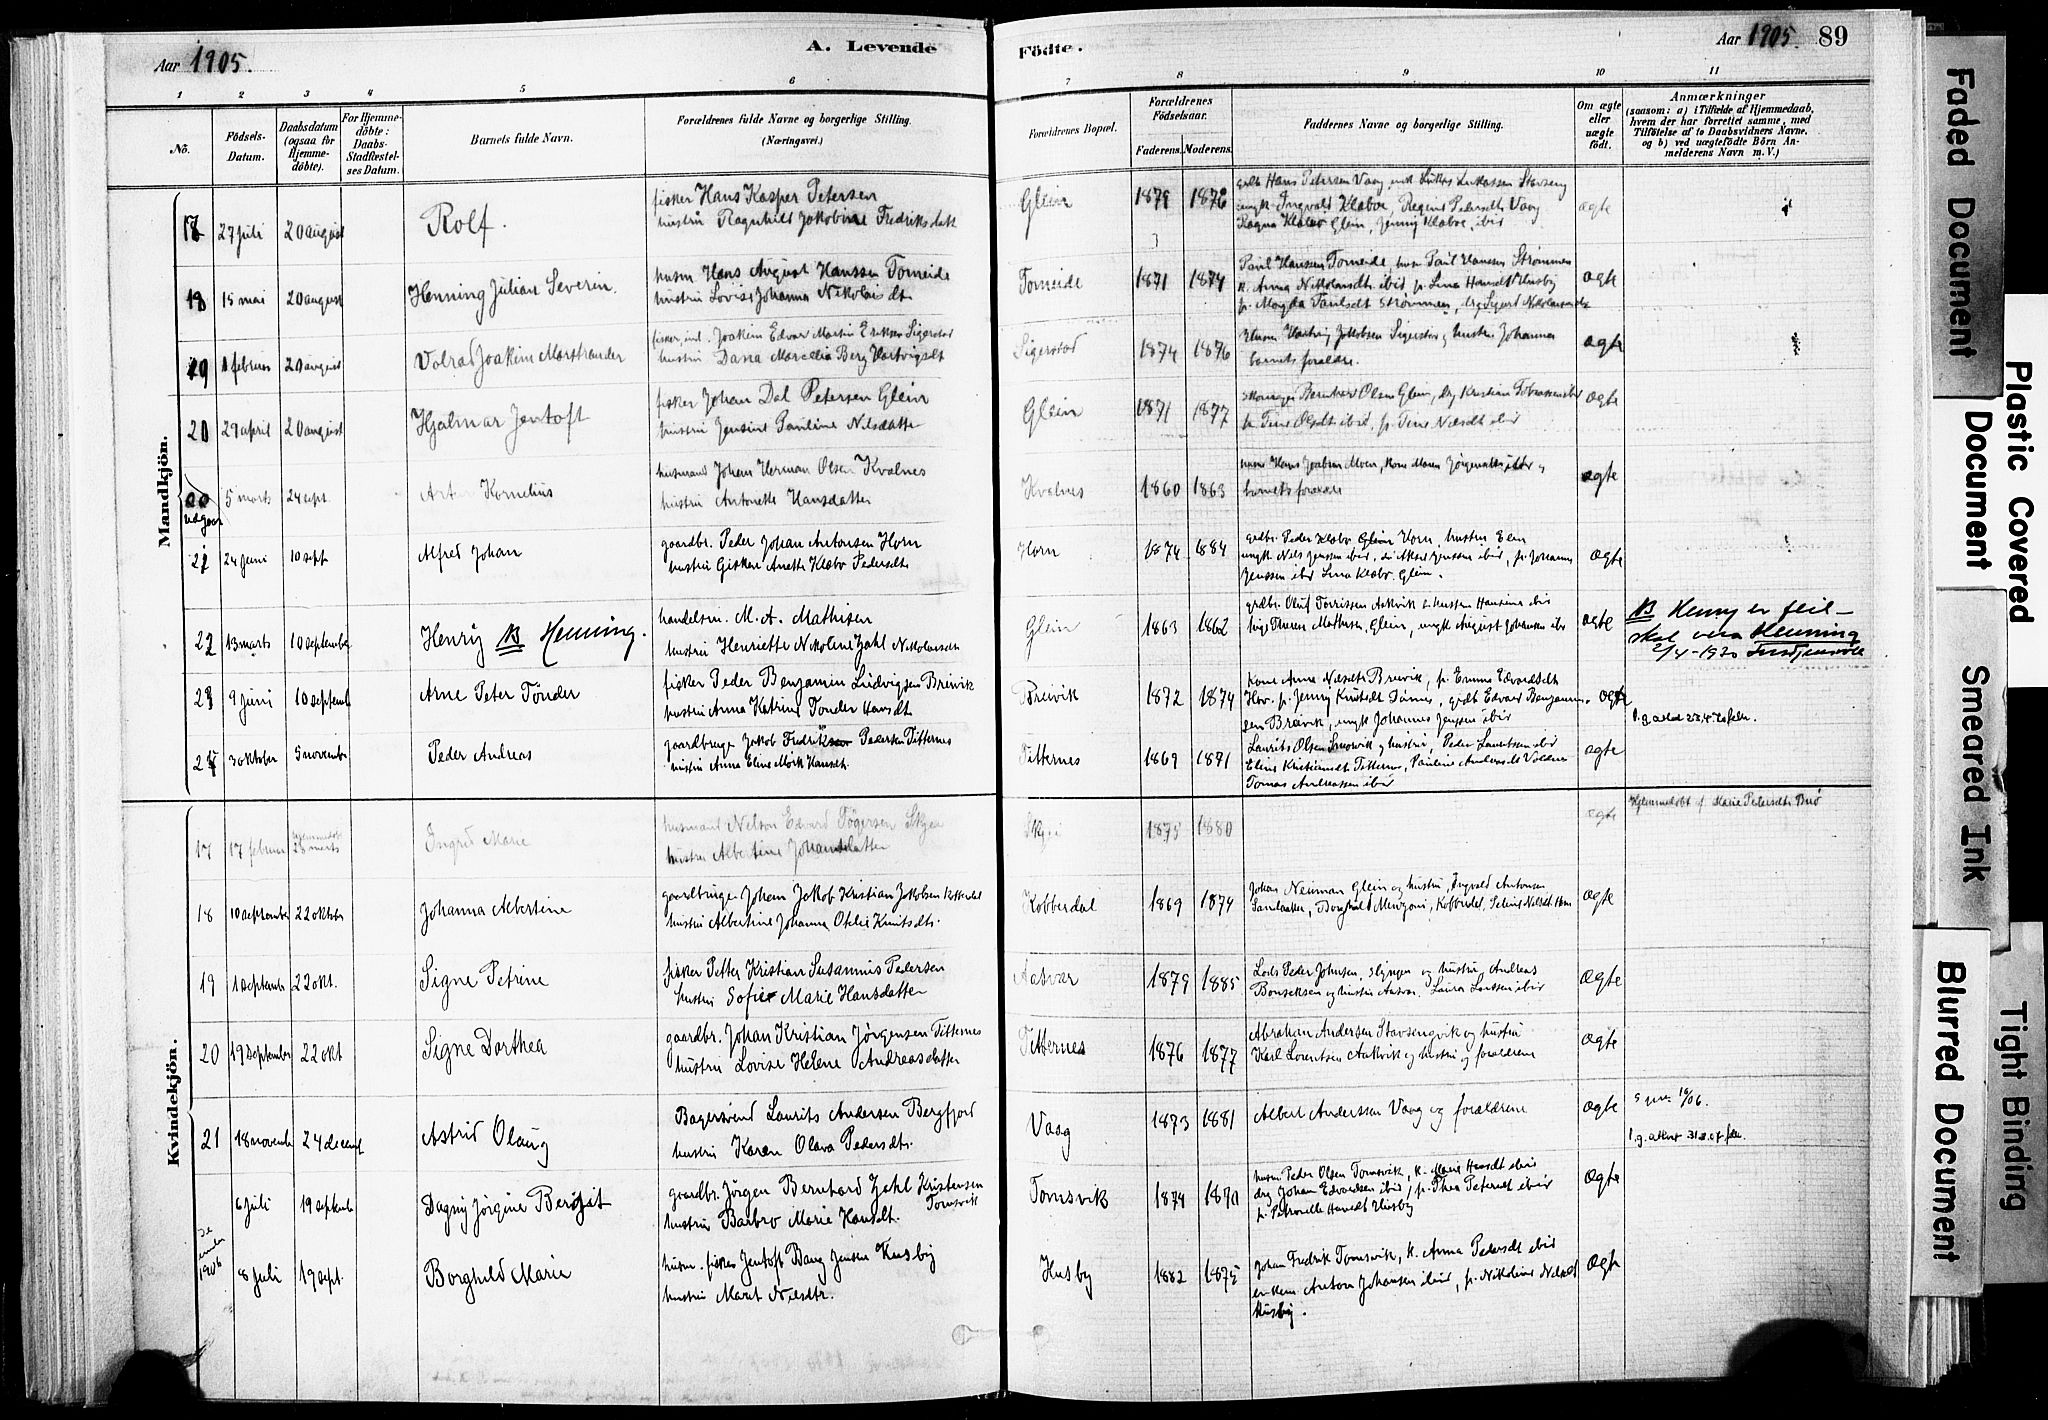 Aar 1905.
A. Levende
Födte.
Aar 1905. 89
1 2 3 4 5 6 7 8 9 10 11
No.
Födsels-
Datum.
Daabsdatum
(ogsaa for
Hjemme-
döbte).
For Hjemme-
döbte:
Daabs-
Stadfæstel-
ses Datum.
Barnets fulde Navn.
Forældrenes fulde Navne og borgerlige Stilling.
(Næringsvei.)
Forældrenes Bopæl.
Forældrenes
Födselsaar.
Faderens. Moderens.
Faddernes Navne og borgerlige Stilling.
Om ægte
eller
uægte
födt.
Anmærkninger
(saasom: a) i Tilfælde af Hjemmedaab,
hvem der har forrettet samme, med
Tilföielse af to Daabsvidners Navne.
og b) ved uægtefödte Börn An-
melderens Navn m. V.)
Mandkjön.
17 27 juli 20 august Rolf.
fisker Hans Kasper Petersen
hustru Ragnhild Jakobine Fredriksdatt
Glein 1879 1876
grdb Hans Petersen Vaag, Lukas Lukassen Stavseng
ungk Ingvald Klæboe, Regine Pedersdt Vaag
Ragna Klæbo Glein, Jenny Klæboe, ibid
ægte
18 15 mai 20 august Henning Julian Severin.
husm Hans August Hanssen Torneide
hustru Lovise Johanna Nikolaisdt
Torneide 1871 1874
Paul Hanssen Torneide, husm Paul Hanssen Strømmen
k. Anna Nikolaisdt ibid, p. Lina Hansdt Husby
p. Magda Paulsdt Strømmen, drg Sigurd
ægte
19 1 februar 20 august Volrad Joakim Marstrander
fisker, ind. Joakim Edvar Martin Eriksen Sigerstad
hustru Dana Marcelia Berg Hartvigsdt
Sigerstad 1874 1876
Husm Hartvig Jakobsen Sigerstad, hustru Johanna
barnets forældre.
ægte
20 29 april 20 august Hjalmar Jentoft
fisker Johan Dal Petersen Glein
hustru Jensine Pauline Nilsdatter
Glein 1871 1877
Skomager Bernhard Olsen Glein, drg Kristian Tobiassen ibid
p. Tine Olsdt ibid, p. Tine Nilsdt ibid
ægte
20 udgaar 5 marts 24 sept. Artur Kornelius
husmand Johan Herman Olsen Kvalnes
hustru Antonette Hansdatter
Kvalnes 1860 1863
husm Hans Jakobsen Moen, kone Maren Jørgensdt ibid og
barnets forældre
ægte
21 24 juni 10 sept Alfred Johan
gaardbr. Peder Johan Antonsen Horn
hustru Gisken Anette Klæbo Pedersdt
Horn 1874 1884
grdbr. Peder Klæbo Glein Horn, hustru Elen
ungk Nils Jenssen ibid, Aksel Jenssen ibid, p. Johanna
Jenssen ibid Lina Klæbo. Glein.
ægte
22 13 marts 10 september Henry NB Henning.
handelsm. M. A. Mathisen
hustru Henriette Nikoline Zahl Nikolaisdt
Glein 1863 1862
grdbr. Oluf Torrissen Aakvik & hustru Hansine ibid
Therese Mathisen, Glein, ungk August Johansen ibid
ægte
NB Henny er feil-
skal være Henning
2/4-1920
23 9 juni 10 septemb Arne Peter Tønder
fisker Peder Benjamin Ludvigsen Breivik
hustru Anna Katrine Tønder Hansdt
Breivik 1872 1874
Kone Anna Nilsdt Breivik, p. Emma Edvardsdt
Hov. p. Jenny Knutsdt Dønnes, grdb Edvard Benjamin-
sen Breivik, ungk Johannes Jenssen ibid
ægte
24 3 oktober 5 november Peder Andreas
gaardbruger Jakob Fredrik Pedersen Titternes
hustru Anna Eline Mørk Hansdt.
Titternes 1869 1871
Laurits Olsen og hustru, Peder Lauritsen ibid
Eline Kristiansdt Titternes, Pauline Andreasdt
Tomas Andreassen ibid
ægte
Kvindekjön.
17 17 februar hjemmedøbt 28 marts Ingrid Marie
husmand Nelson Edvard Tøgersen Skjei
hustru Albertine Johansdatter
Skjei 1875 1880 ægte
Hjemmedøbt af Marie Pedersdt
18 10 september 22 oktober Johanna Albertine
gaardbruger Johan Jakob Kristian Jakobsen Kobberdal
hustru Albertine Johanna Otelie Knutsdt.
Kobberdal 1869 1874
Johan Neuman Glein og hustru, Ingvald Antonsen
Borghild Kobberdal,
ægte
19 1 september 22 okt. Signe Petrine
fisker Petter Kristian Susannus Pedersen
hustru Sofie Marie Hansdatter
Aasvær 1879 1885
Lods Peder Johnsen, Slyngen og hustru, Andreas
og hustru Aasvær. Laura Larssen ibid
ægte
20 19 september 22 okt Signe Dorthea
gaardbr. Johan Kristian Jørgensen Titternes
hustru Lovise Helene Andreasdatter
Titternes 1876 1877
Abraham Andersen Stavsengvik og hustru
Karl Lorentsen Aakvik og hustru og forældrene
ægte
21 18 november 24 decemb Astrid Olaug
Bagersvend Laurits Andersen Bergfjord
hustru Karen Olava Pedersdt.
Vaag 1873 1881
Albert Anderssen Vaag og forældrene
ægte
6 juli 19 septemb Dagny Jørgine Bergit
gaardbr. Jørgen Bernhard Zahl Kristensen
Tomsvik
hustru Barbro Marie Hansdt.
Tomsvik 1874 1870
husm Peder Olsen Tomsvik, k. Marie Hansdt ibid
drg Johan Edvardsen ibid, p. Thea Petersdt ibid
p. Petronelle Hansdt Husby
ægte
1906 8 juli 19 sept. Borghild Marie
husm. fisker Jentoft Bang Jensen Husby
hustru Marit Nilsdtr.
Husby 1882 1875
Johan Fredrik Tomsvik, k. Anna Pedersdt ibid
Anton Johansen ibid, p. Nikoline Nilsdt
Husby.
ægte
Faded Document
Plastic Covered Document
Smeared Ink
Tight Binding
Blurred Document